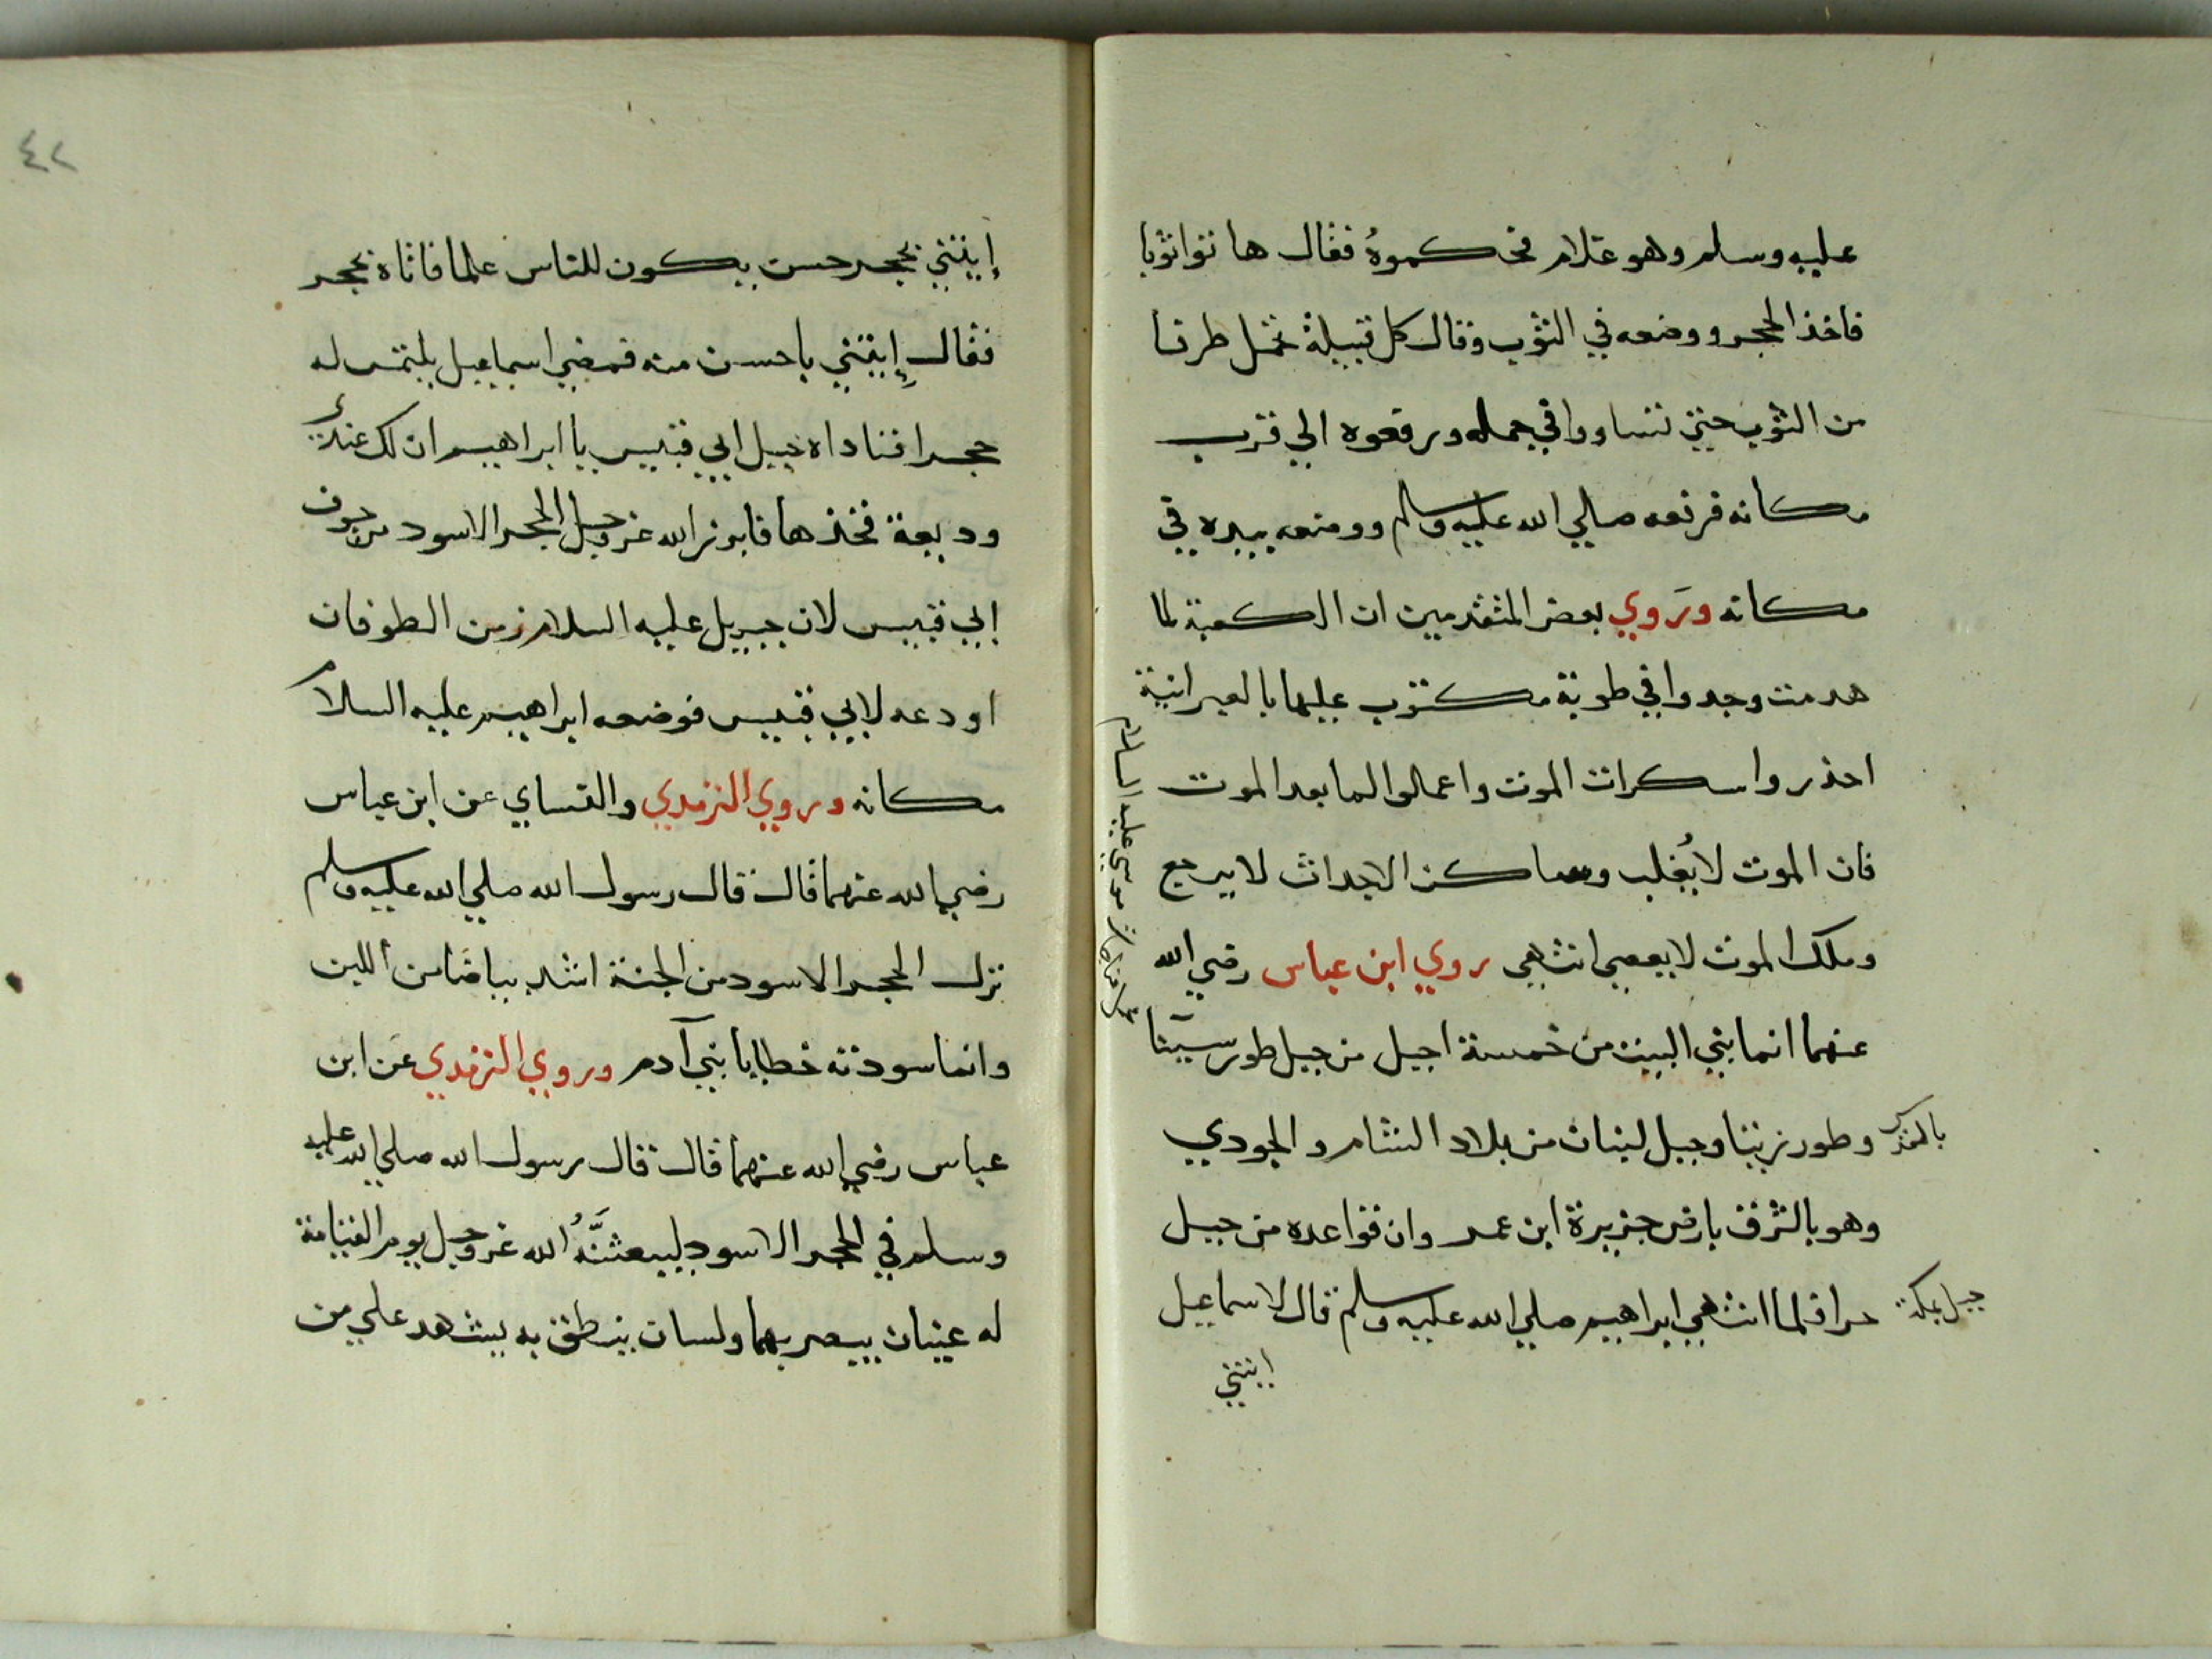 عليه وسلم وهو غلام فحكموهُ فقال هاتوا ثوبا
فاخذ الحجر ووضعه في الثوب وقال كل قبيلة تحمل طرفا
من الثوب حتي تساووا في حمله ورفعوه الي قرب
مكانه فرفعه صلي الله عليه وسلم ووضعه بيده في
مكانه ورَوي بعض المتقدمين ان الكعبة لما
هدمت وجدوا في طوبة مكتوب عليها بالعبرانية
احذروا سكرات الموت واعملوا لما بعد الموت
فان الموت لا يُغلب وساكن الاجداث لا يرجع
وملك الموت لا يعصي انتهي روي ابن عباس رضي الله
عنهما انما بني البيت من خمسة اجبل من جبل طور سينا
وطور زيتا وجبل لبنان من بلاد الشام والجودي
وهو بالشرق بارض جزيرة ابن عمر وان قواعده من جبل
حرا فلما انتهي ابراهيم صلي الله عليه وسلم قال لاسماعيل
ايتني
موسي عليه السلام
جبل بمكة
٤٢
إيتني بحجر حسن يكون للناس علما فاتاه بحجر
فقال إيتني باحسن منه فمضي اسماعيل يلتمس له
حجرا فناداه جبل ابي قبيس يا ابراهيم ان لك عندي
وديعة فخذها فابرز الله عز وجل الحجر الاسود من جوف
ابي قبيس لان جبريل عليه السلام زمن الطوفان
اودعه لابي قبيس فوضعه ابراهيم عليه السلام
مكانه وروي الترمدي والنساي عن ابن عباس
رضي الله عنهما قال قال رسول الله صلي الله عليه وسلم
نزل الحجر الاسود من الجنة اشد بياضا من اللبن
وانما سودته خطايا بني آدم وروي الترمدي عن ابن
عباس رضي الله عنهما قال قال رسول الله صلي الله عليه
وسلم في الحجر الاسود ليبعثنَّهُ الله عز وجل يوم القيامة
له عينان يبصر بهما ولسان ينطق به يشهد علي من